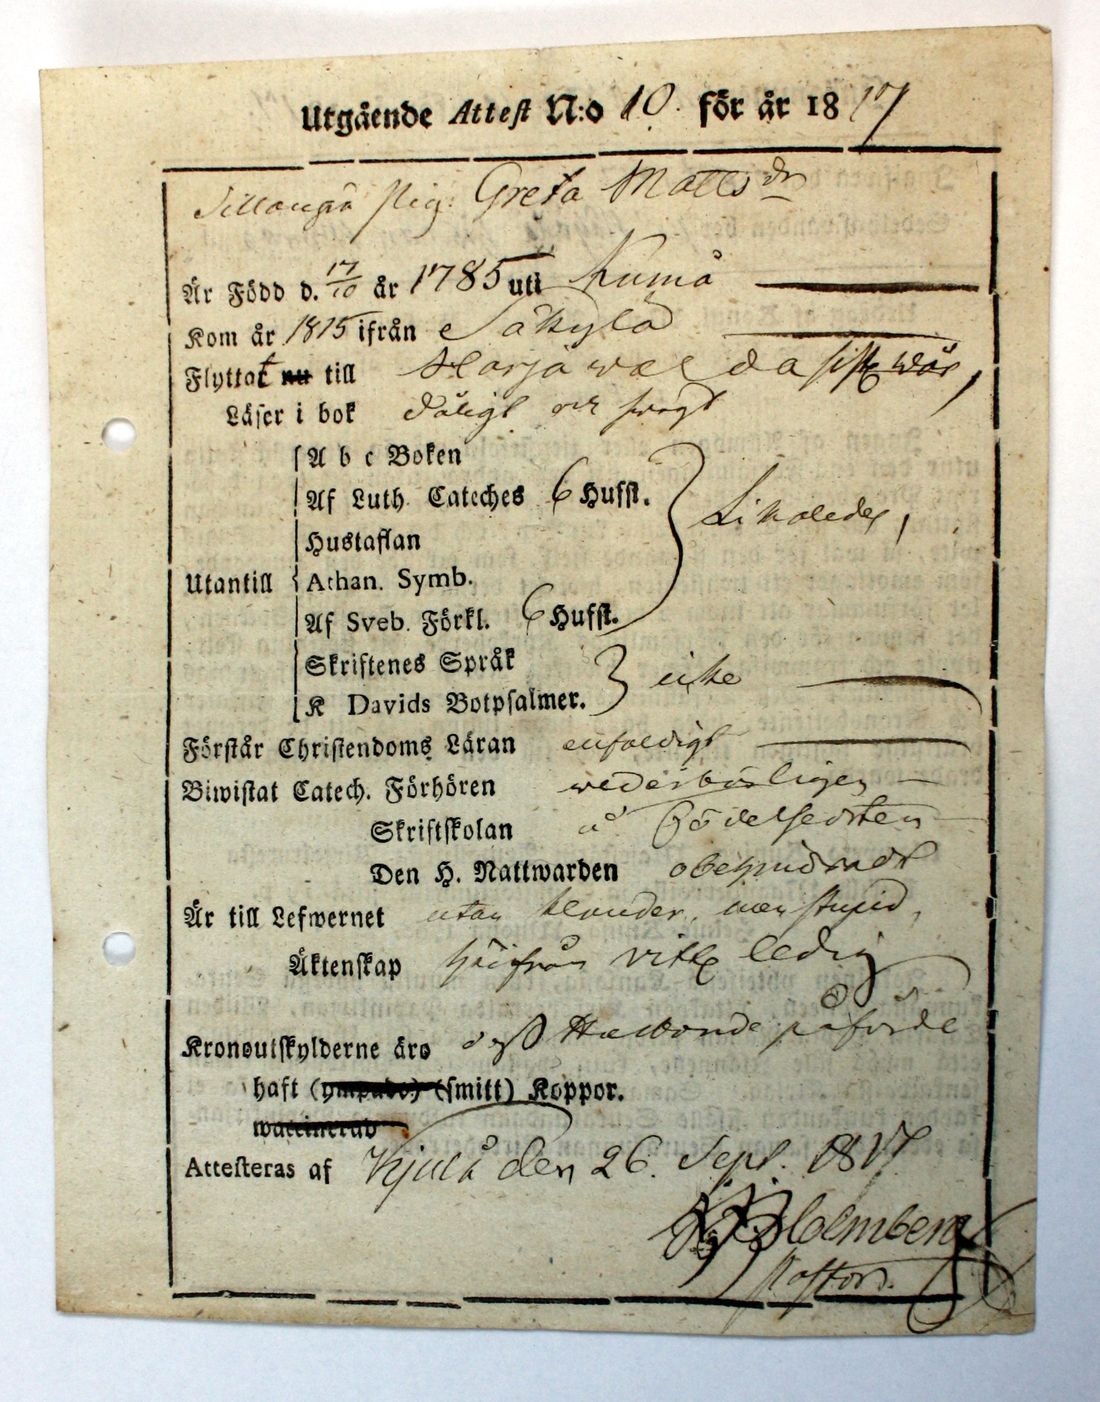 Utgående Attest N:o 10. för år 1817
Pig. Greta Mattsdr
Är Född d. 17/10 år 1785 uti Kumå
Kom år 1815 ifrån Säkylä
Flyttat nu till Harjawal da sistl. wår,
Läser i bok dåligt och swagt
A b c Boken
Af Luth. Cateches 6 Hufst.
Hustaflan
Utantill Athan. Symb.
Af Sveb. Förkl. 6 Hufst.
Likaledes,
Skriftenes Språk
K Davids Botpsalmer.
icke
Förstår Christendoms Läran enfaldigt
Biwistat Catech. Förhören wederbörligen
Skriftskolan å Födelseorten
Den H. Nattwarden obehindradt
Är till Lefwernet utan klander, men stupid,
Äktenskap härifrån ledig
Kronoutskylderne äro påförde
haft (ympade) (smitt) Koppor.
waccinerad
Attesteras af Kjulå den 26. Sept. 1817
Holmberg
Pastor.